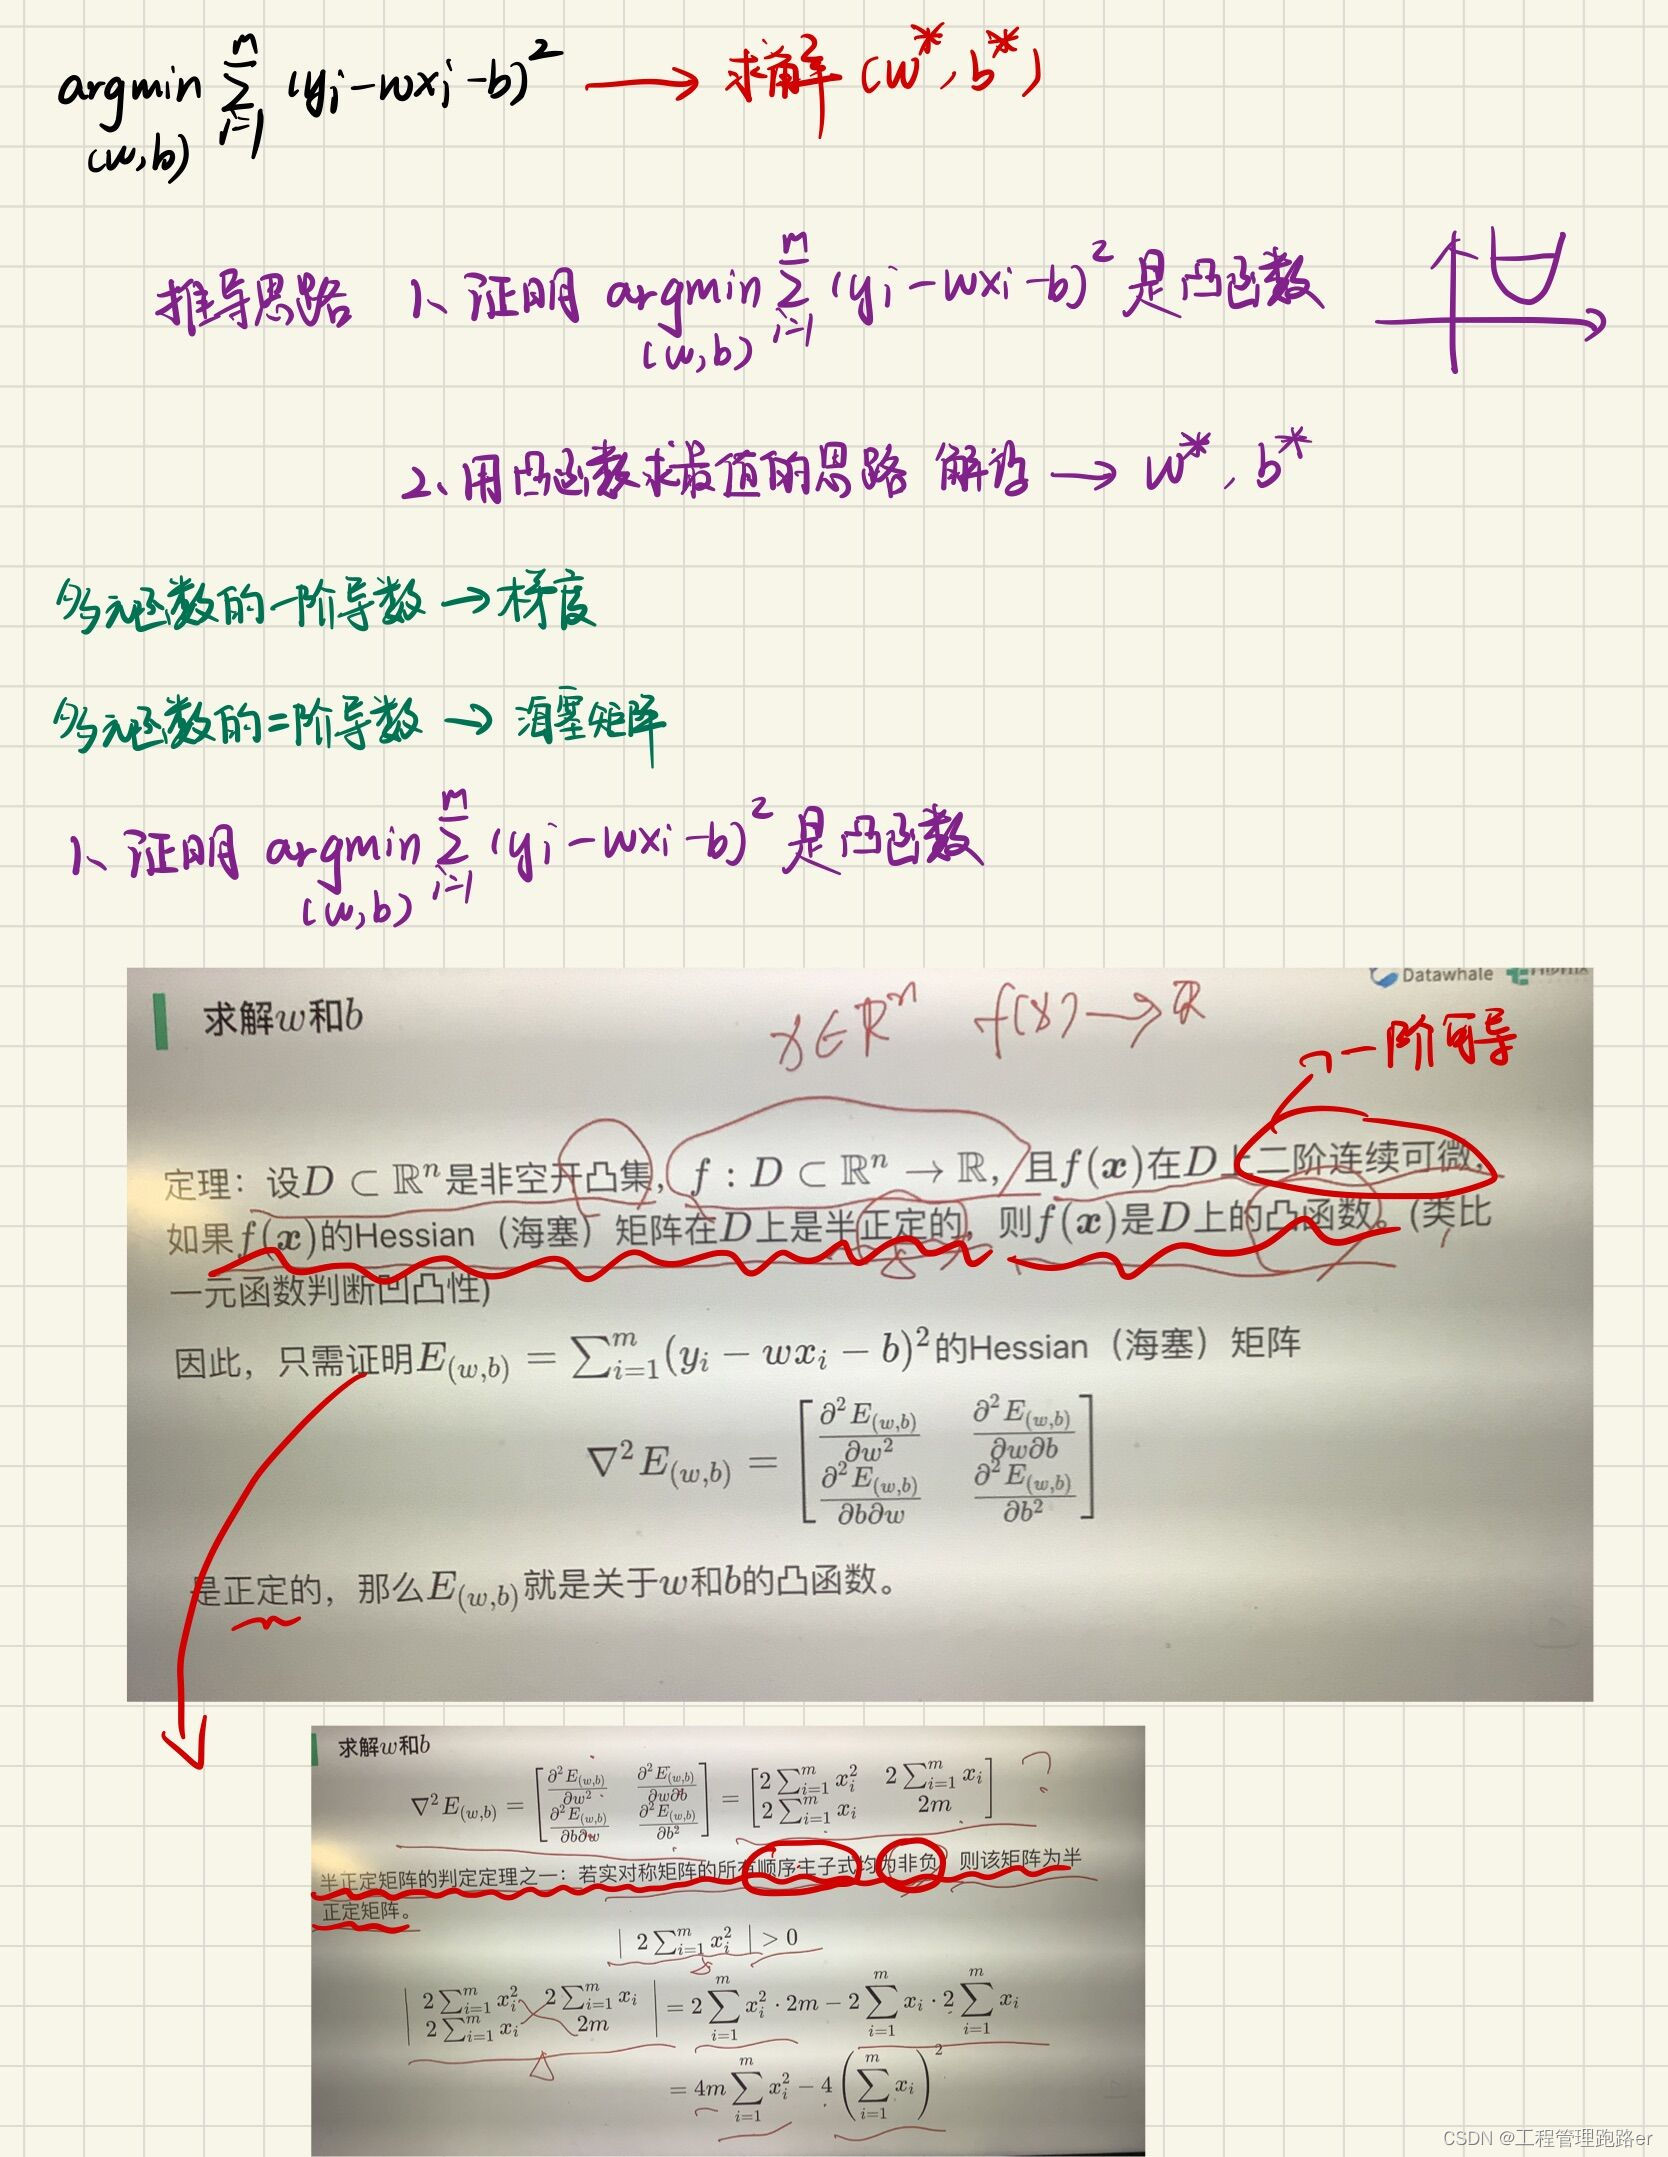 argmin Σ (yi-wxi-b)² → 求解 (w*, b*)
(w,b) i=1 m
推导思路 1、证明 argmin Σ (yi-wxi-b)² 是凸函数
(w,b) i=1 m
2、用凸函数求最值的思路 解读 → w*, b*
多元函数的一阶导数 → 梯度
多元函数的二阶导数 → 海塞矩阵
1、证明 argmin Σ (yi-wxi-b)² 是凸函数
(w,b) i=1 m
Datawhale
求解w和b x∈ℝⁿ f(x)→ℝ
一阶可导
定理：设D ⊂ ℝⁿ是非空开凸集，f : D ⊂ ℝⁿ → ℝ，且f(x)在D上二阶连续可微，
如果f(x)的Hessian（海塞）矩阵在D上是半正定的，则f(x)是D上的凸函数。(类比
一元函数判断凹凸性)
因此，只需证明E(w,b) = Σᵢ₌₁ᵐ(yᵢ − wxᵢ − b)²的Hessian（海塞）矩阵
∇²E(w,b) = [ ∂²E(w,b)/∂w² ∂²E(w,b)/∂w∂b
∂²E(w,b)/∂b∂w ∂²E(w,b)/∂b² ]
是正定的，那么E(w,b)就是关于w和b的凸函数。
求解w和b
∇²E(w,b) = [ ∂²E(w,b)/∂w² ∂²E(w,b)/∂w∂b ] = [ 2Σᵢ₌₁ᵐ xᵢ² 2Σᵢ₌₁ᵐ xᵢ ] ?
[ ∂²E(w,b)/∂b∂w ∂²E(w,b)/∂b² ] [ 2Σᵢ₌₁ᵐ xᵢ 2m ]
半正定矩阵的判定定理之一：若实对称矩阵的所有顺序主子式均为非负，则该矩阵为半
正定矩阵。
| 2Σᵢ₌₁ᵐ xᵢ² | > 0
| 2Σᵢ₌₁ᵐ xᵢ² 2Σᵢ₌₁ᵐ xᵢ | = 2Σᵢ₌₁ᵐ xᵢ² · 2m − 2Σᵢ₌₁ᵐ xᵢ · 2Σᵢ₌₁ᵐ xᵢ
| 2Σᵢ₌₁ᵐ xᵢ 2m |
= 4mΣᵢ₌₁ᵐ xᵢ² − 4(Σᵢ₌₁ᵐ xᵢ)²
CSDN @工程管理跑路er